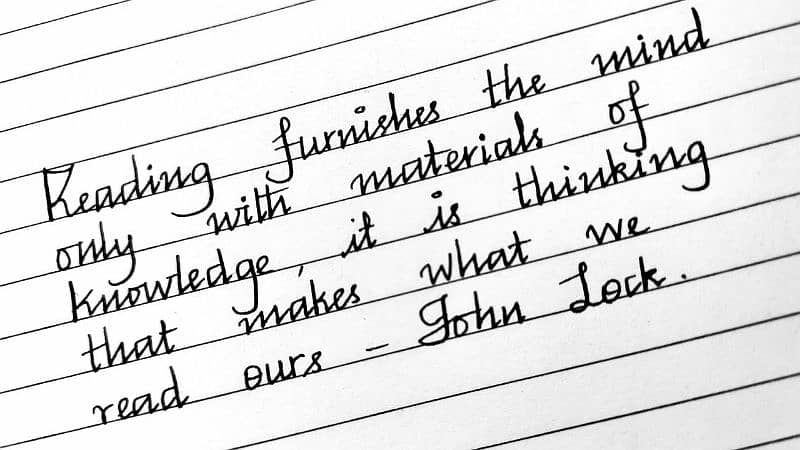 Reading furnishes the mind
only with materials of
knowledge, it is thinking
that makes what we
read ours - John Lock.